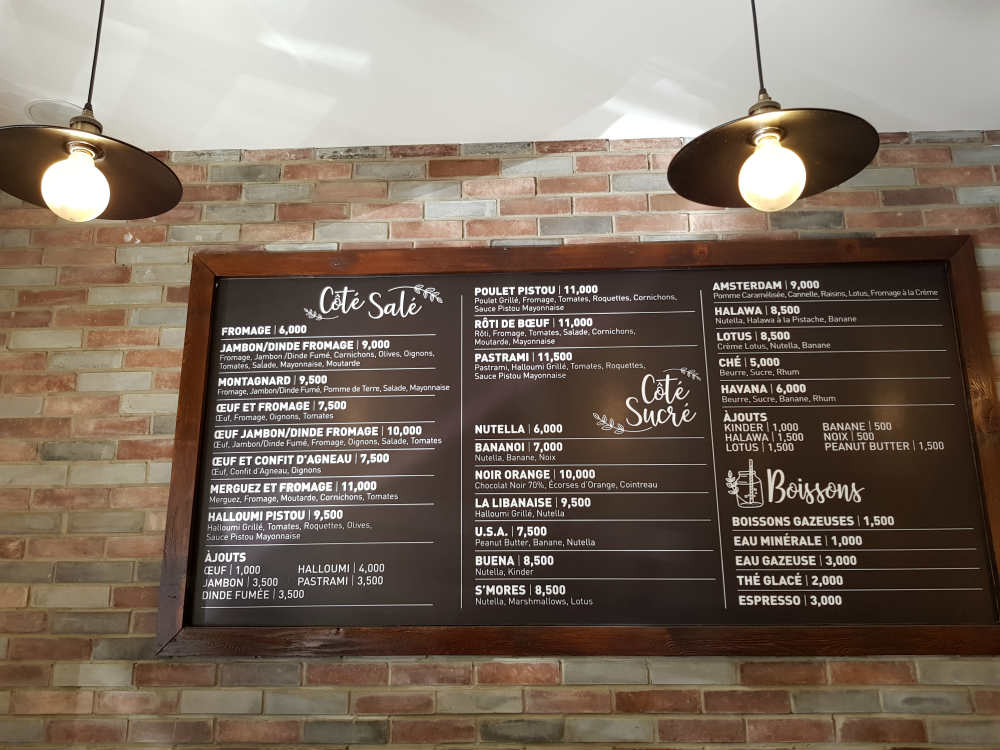 Côté Salé
FROMAGE | 6,000
JAMBON/DINDE FROMAGE | 9,000
Fromage, Jambon /Dinde Fumé, Cornichons, Olives, Oignons,
Tomates, Salade, Mayonnaise, Moutarde
MONTAGNARD | 9,500
Fromage, Jambon/Dinde Fumé, Pomme de Terre, Salade, Mayonnaise
ŒUF ET FROMAGE | 7,500
Œuf, Fromage, Oignons, Tomates
ŒUF JAMBON/DINDE FROMAGE | 10,000
Œuf, Jambon/Dinde Fumé, Fromage, Oignons, Salade, Tomates
ŒUF ET CONFIT D'AGNEAU | 7,500
Œuf, Confit d'Agneau, Oignons
MERGUEZ ET FROMAGE | 11,000
Merguez, Fromage, Moutarde, Cornichons, Tomates
HALLOUMI PISTOU | 9,500
Halloumi Grillé, Tomates, Roquettes, Olives,
Sauce Pistou Mayonnaise
ÀJOUTS
ŒUF | 1,000
JAMBON | 3,500
DINDE FUMÉE | 3,500
HALLOUMI | 4,000
PASTRAMI | 3,500
POULET PISTOU | 11,000
Poulet Grillé, Fromage, Tomates, Roquettes, Cornichons,
Sauce Pistou Mayonnaise
RÔTI DE BŒUF | 11,000
Rôti, Fromage, Tomates, Salade, Cornichons,
Moutarde, Mayonnaise
PASTRAMI | 11,500
Pastrami, Halloumi Grillé, Tomates, Roquettes,
Sauce Pistou Mayonnaise
Côté
Sucré
NUTELLA | 6,000
BANANOI | 7,000
Nutella, Banane, Noix
NOIR ORANGE | 10,000
Chocolat Noir 70%, Écorses d'Orange, Cointreau
LA LIBANAISE | 9,500
Halloumi Grillé, Nutella
U.S.A. | 7,500
Peanut Butter, Banane, Nutella
BUENA | 8,500
Nutella, Kinder
S'MORES | 8,500
Nutella, Marshmallows, Lotus
AMSTERDAM | 9,000
Pomme Caramélisée, Cannelle, Raisins, Lotus, Fromage à la Crème
HALAWA | 8,500
Nutella, Halawa à la Pistache, Banane
LOTUS | 8,500
Crème Lotus, Nutella, Banane
CHÉ | 5,000
Beurre, Sucre, Rhum
HAVANA | 6,000
Beurre, Sucre, Banane, Rhum
ÀJOUTS
KINDER | 1,000
HALAWA | 1,500
LOTUS | 1,500
BANANE | 500
NOIX | 500
PEANUT BUTTER | 1,500
Boissons
BOISSONS GAZEUSES | 1,500
EAU MINÉRALE | 1,000
EAU GAZEUSE | 3,000
THÉ GLACÉ | 2,000
ESPRESSO | 3,000